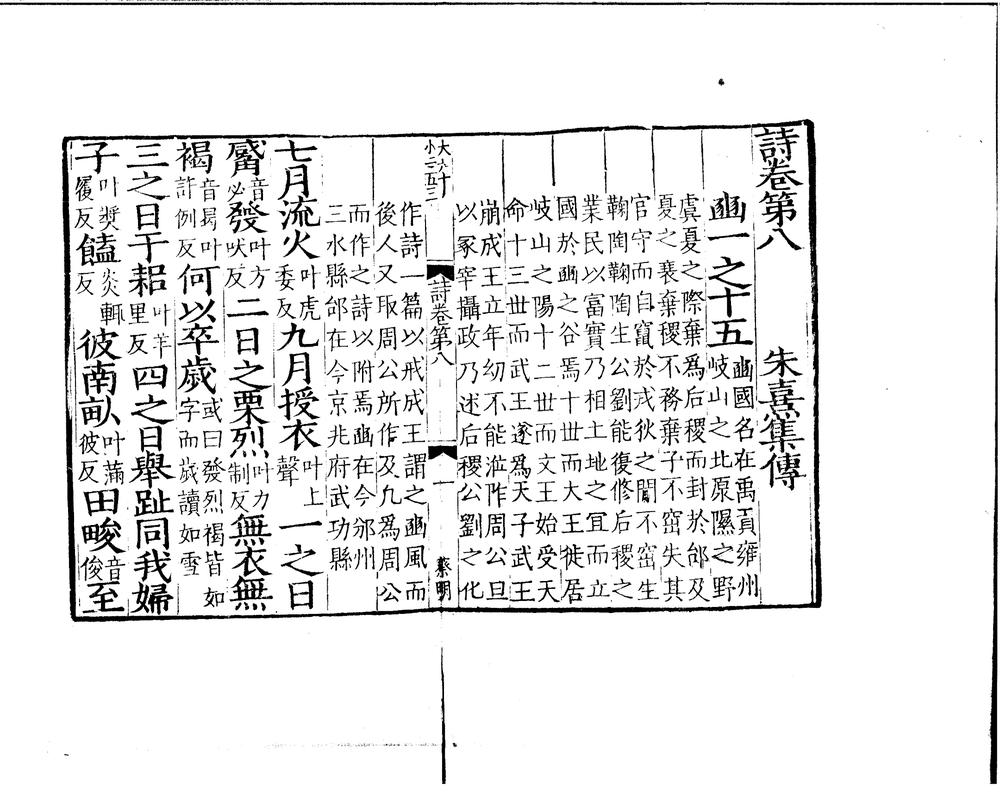 詩卷第八　朱熹集傳
豳一之十五豳國名在禹貢雍州岐山之北原隰之野
虞夏之際棄爲后稷而封於邰及
夏之衰棄稷不務棄子不窋失其
官守而自竄於戎狄之閒不窋生
鞠陶鞠陶生公劉能復修后稷之
業民以富實乃相土地之宜而立
國於豳之谷焉十世而大王徙居
岐山之陽十二世而文王始受天
命十三世而武王遂爲天子武王
崩成王立年幼不能涖阼周公旦
以冢宰攝政乃述后稷公劉之化
大六十
小三五三
詩卷第八　一　蔡明
作詩一篇以戒成王謂之豳風而
後人又取周公所作及凡爲周公
而作之詩以附焉豳在今邠州
三水縣邰在今京兆府武功縣
七月流火叶虎委反九月授衣叶上聲一之日
觱音必發叶方吠反二日之栗烈叶力制反無衣無
褐音曷叶許例反何以卒歲或曰發烈褐皆如字而歲讀如雪
三之日于耜叶羊里反四之日舉趾同我婦
子叶奬履反饁炎輒反彼南畝叶滿彼反田畯音俊至